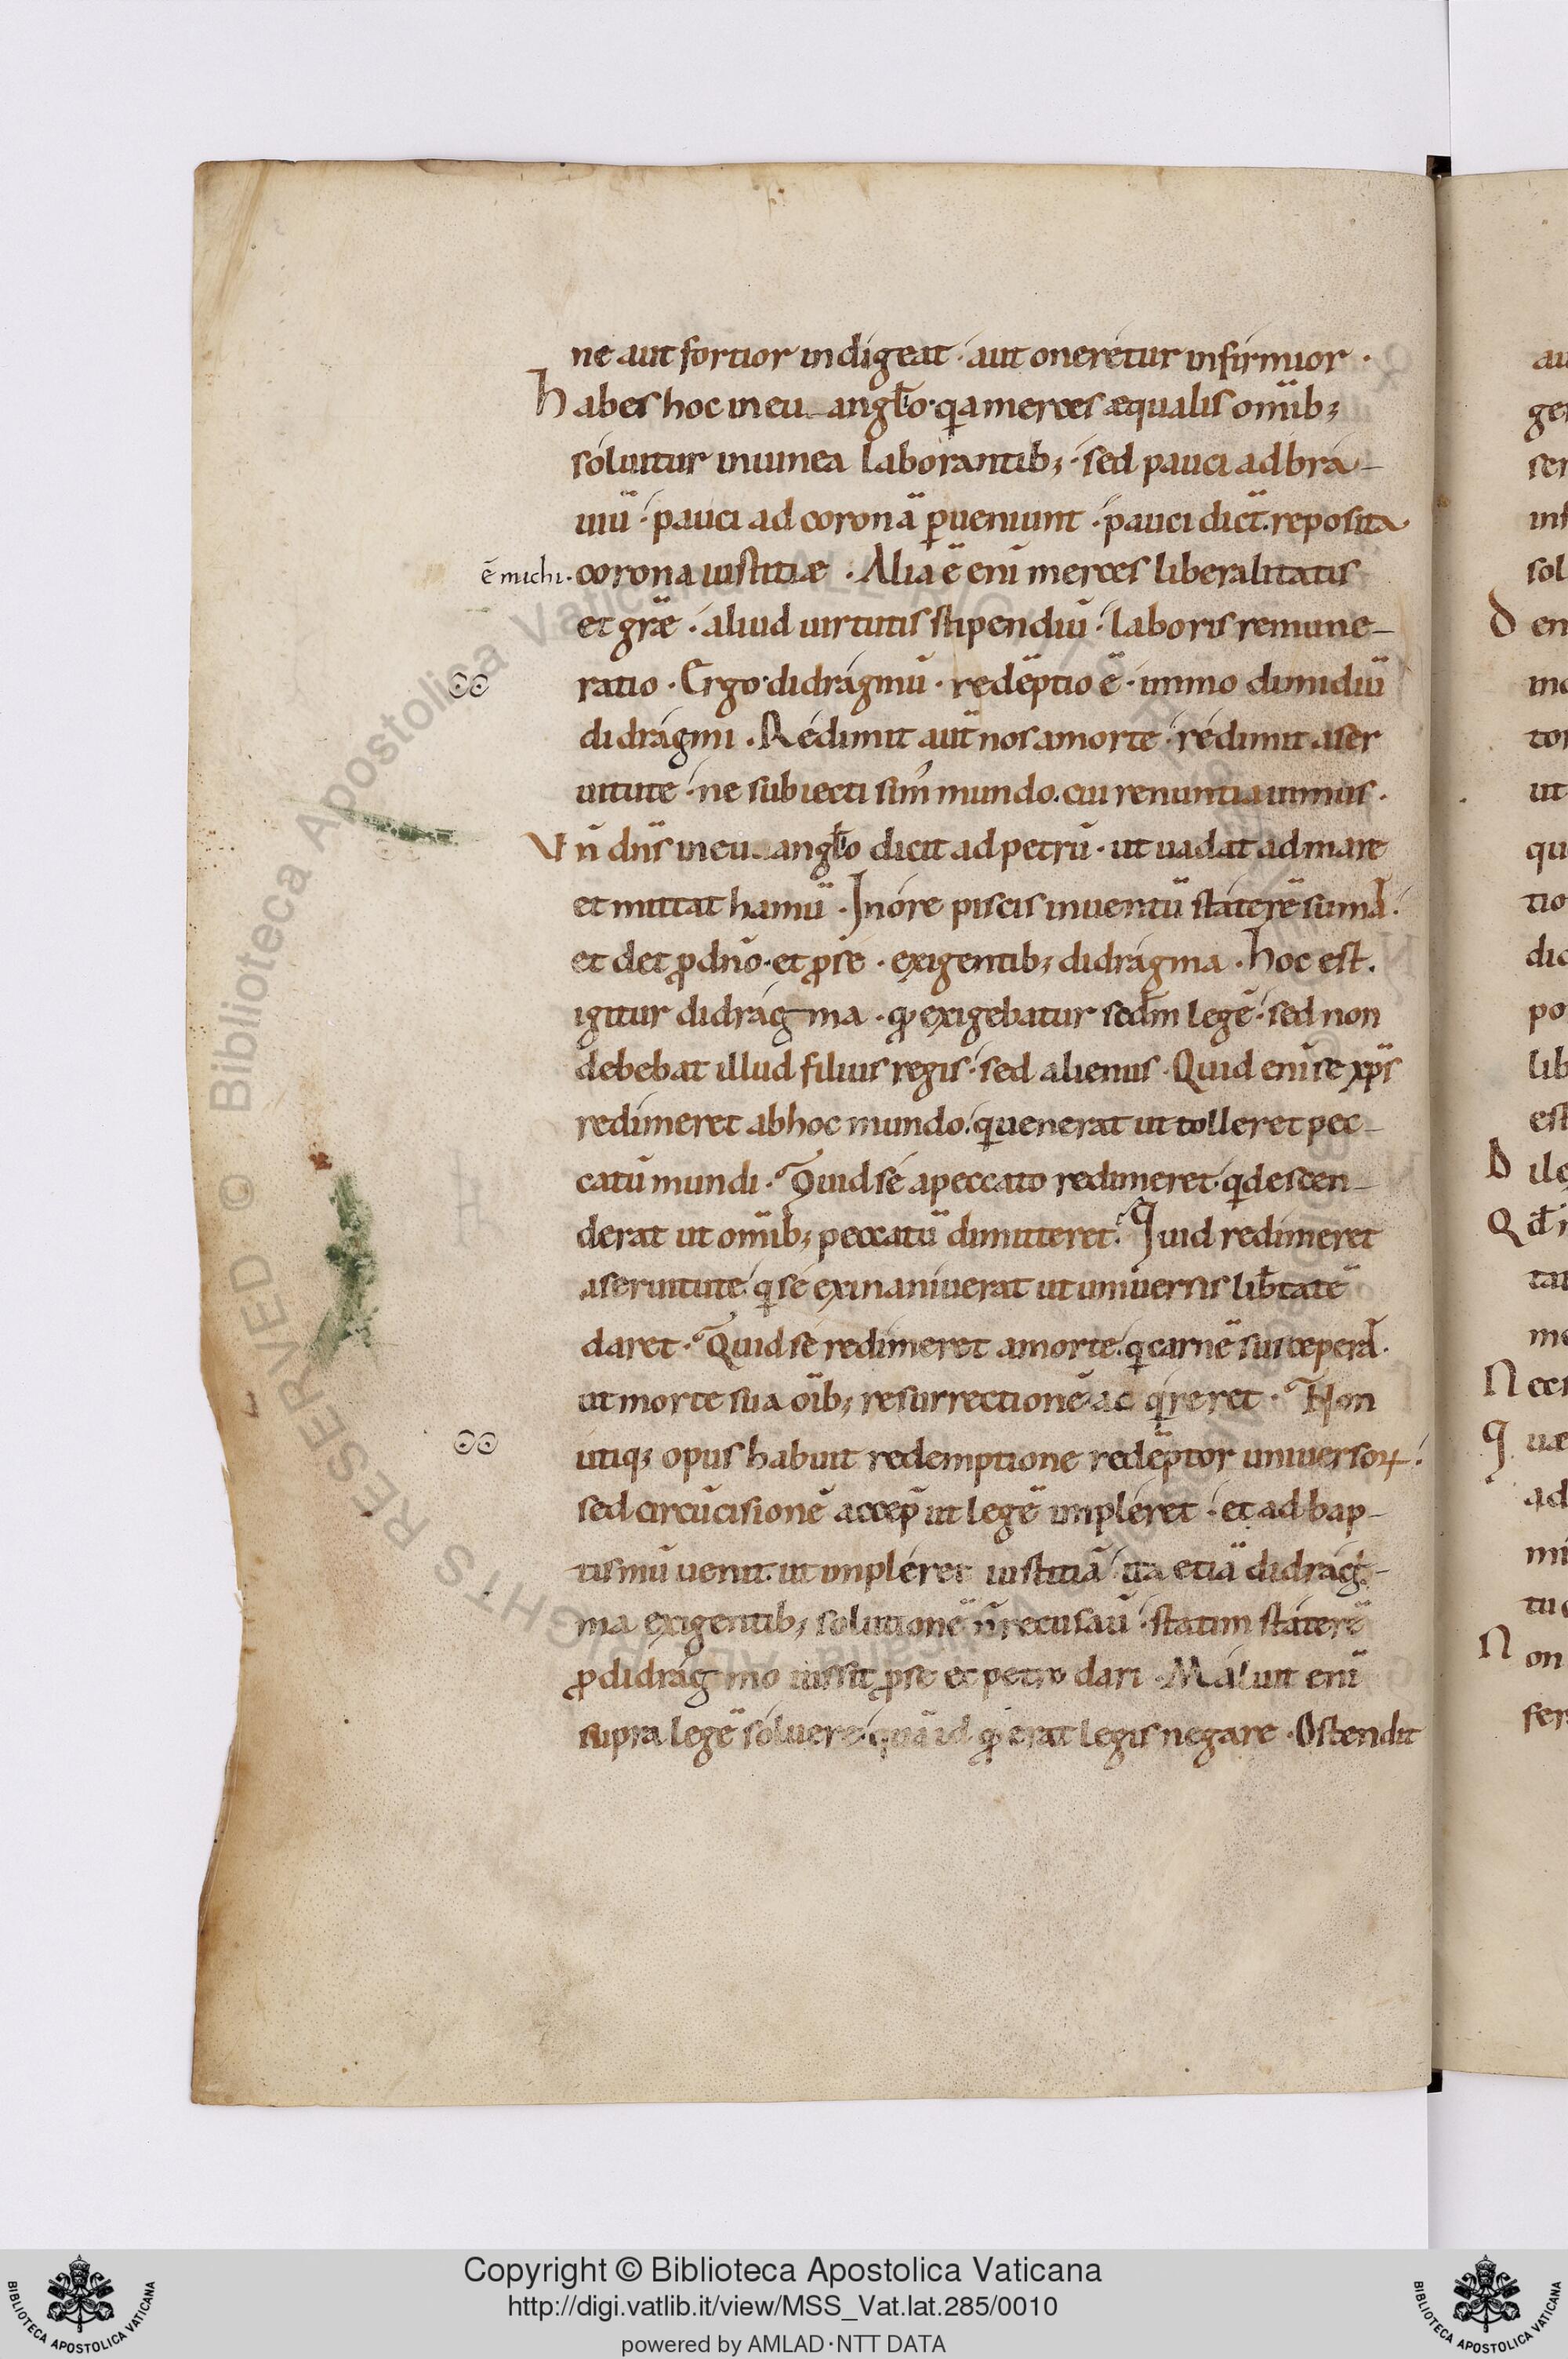 ne aut fortior indigeat · aut oneretur infirmior ·
Habes hoc in eu angl̄o · q̨a merces æqualis omīb;
soluitur in uinea laborantib; · sed pauci ad bra-
uiū · pauci ad coronā ꝑueniunt · pauci dic̄t. reposita
ē michi · corona iustitiæ · Alia ē enī merces liberalitatis
et grǣ · aliud uirtutis stipendiū · laboris remune-
ratio · Ergo · didragmū · redēptio ē · immo dimidiū
didragmi · Redimit aut̄ nos a morte · redimit a ser
uitute · ne subiecti sim̄ mundo. cui renuntiauimus ·
Vn̄ dn̄s in eu angl̄o dicit ad petrū · ut uadat ad mare
et mittat hamū · In ore piscis inuentū staterē sumat ·
et det ꝓ dn̄o · et ꝓ se · exigentib; didragma · hoc est.
igitur didragma · qđ exigebatur scd̄m legē · sed non
debebat illud filius regis · sed alienus · Quid enī se xp̄s
redimeret ab hoc mundo · qui uenerat ut tolleret pec-
catū mundi · Quid se a peccato redimeret · qui descen-
derat ut omīb; peccatū dimitteret · Quid redimeret
a seruitute · qui se exinaniuerat ut uniuersis lib̄tatē
daret · Quid se redimeret a morte · qui carnē susceperat ·
ut morte sua oīb; resurrectionē ac quireret · Non
utiq; opus habuit redemptione redēptor uniuersoꝝ ·
sed circūcisionē accep̄ ut legē impleret · et ad bap-
tismū uenit · ut impleret iustitiā · ita etiā didrag-
ma exigentib; solutionē n̄ recusau̅ · statim staterē
ꝓ didragmo iussit ꝓ se et petro dari · Maluit enī
supra legē soluere · quā id qđ erat legis negare · Ostendit
au
ge
ser
inf
sol
D en
mo
tor
ut
qu
tio
dic
po
lib
est
D ile
Q d̄ i
tat
me
N ec
Q uæ
ad
mi
tu
N on
fer
© Biblioteca Apostolica Vaticana ALL RIGHTS RESERVED
Copyright © Biblioteca Apostolica Vaticana
http://digi.vatlib.it/view/MSS_Vat.lat.285/0010
powered by AMLAD·NTT DATA
BIBLIOTECA APOSTOLICA VATICANA
BIBLIOTECA APOSTOLICA VATICANA